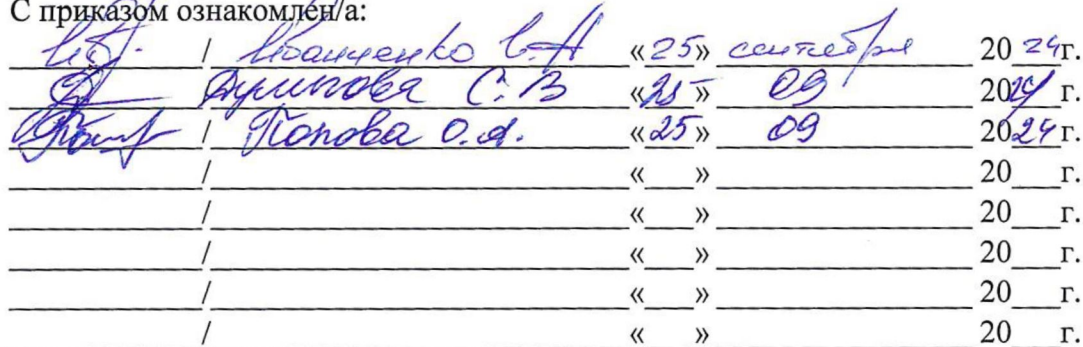 С приказом ознакомлен/а:
/ Иванченко С.А «25» сентября 2024г.
С.В «25» 09 2024 г.
/ Попова О.А. «25» 09 2024г.
/ «___» 20___г.
/ «___» 20___г.
/ «___» 20___г.
/ «___» 20___г.
/ «___» 20___г.